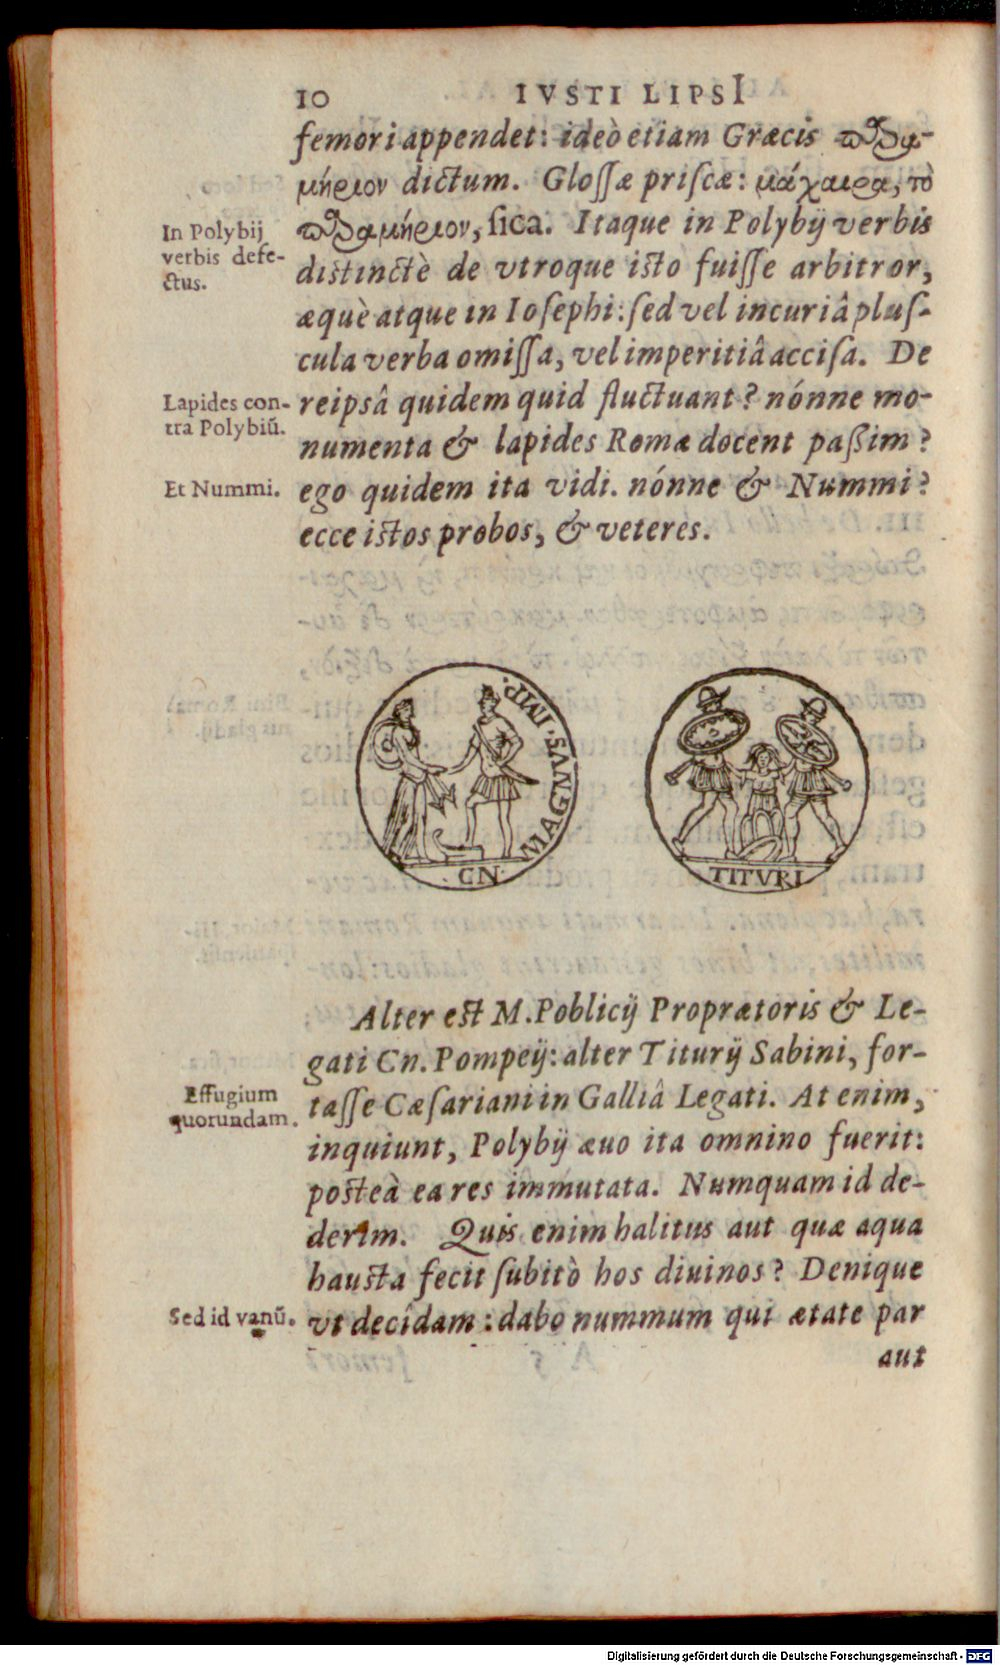 10 IVSTI LIPSI
femori appendet: ideò etiam Græcis παρα-
μήριον dictum. Glossæ priscæ: μάχαιρα, τὸ
παραμήριον, sica. Itaque in Polybij verbis
In Polybij
verbis defe-
ctus.
distinctè de vtroque isto fuisse arbitror,
æquè atque in Iosephi: sed vel incuriâ plus-
cula verba omissa, vel imperitiâ accisa. De
Lapides con-
tra Polybiũ.
reipsâ quidem quid fluctuant? nónne mo-
numenta & lapides Romæ docent paßim?
Et Nummi.
ego quidem ita vidi. nónne & Nummi?
ecce istos probos, & veteres.
CN. MAGNVS. IMP.
TITVRI
Alter est M. Poblicij Proprætoris & Le-
gati Cn. Pompeij: alter Titurij Sabini, for-
Effugium
quorundam.
tasse Cæsariani in Galliâ Legati. At enim,
inquiunt, Polybij æuo ita omnino fuerit:
posteà ea res immutata. Numquam id de-
derim. Quis enim halitus aut quæ aqua
hausta fecit subitò hos diuinos? Denique
Sed id vanũ.
vt decîdam: dabo nummum qui ætate par
aut
Digitalisierung gefördert durch die Deutsche Forschungsgemeinschaft - DFG